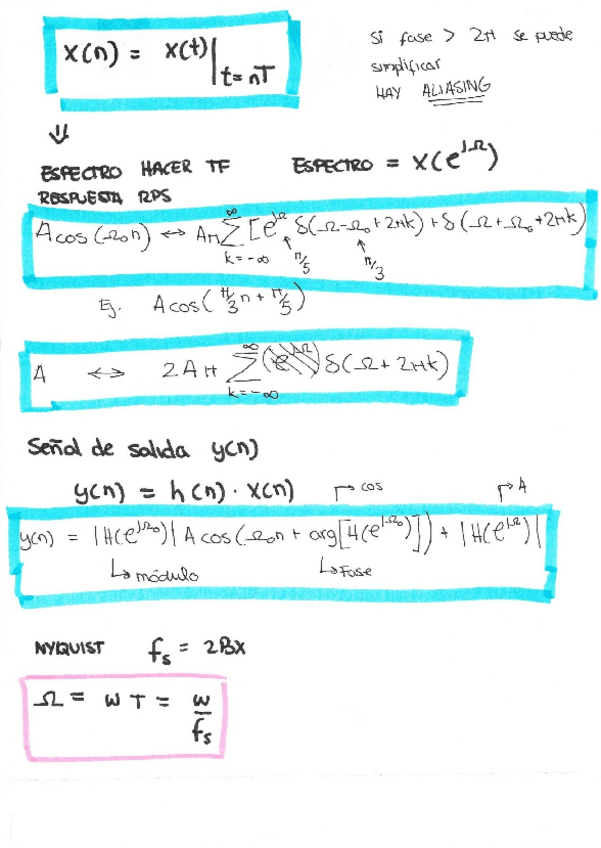 x(n) = x(t)|t=nT
Si fase > 2π se puede
simplificar
HAY ALIASING
⇓
ESPECTRO HACER TF ESPECTRO = X(e^jΩ)
RESPUESTA RPS
A cos(Ω₀n) ↔ Aπ ∑ k=-∞ ∞ [e^jΩ δ(Ω-Ω₀+2πk) + δ(Ω+Ω₀+2πk)
π/5 π/3
Ej. A cos(π/3 n + π/5)
A ↔ 2Aπ ∑ k=-∞ ∞ δ(Ω+2πk)
Señal de salida y(n)
y(n) = h(n) · x(n)
↱ cos ↱ A
y(n) = |H(e^jΩ₀)| A cos(Ω₀n + arg[H(e^jΩ₀)]) + |H(e^jΩ)|
↳ módulo ↳ Fase
NYQUIST fs = 2Bx
Ω = w T = w/fs